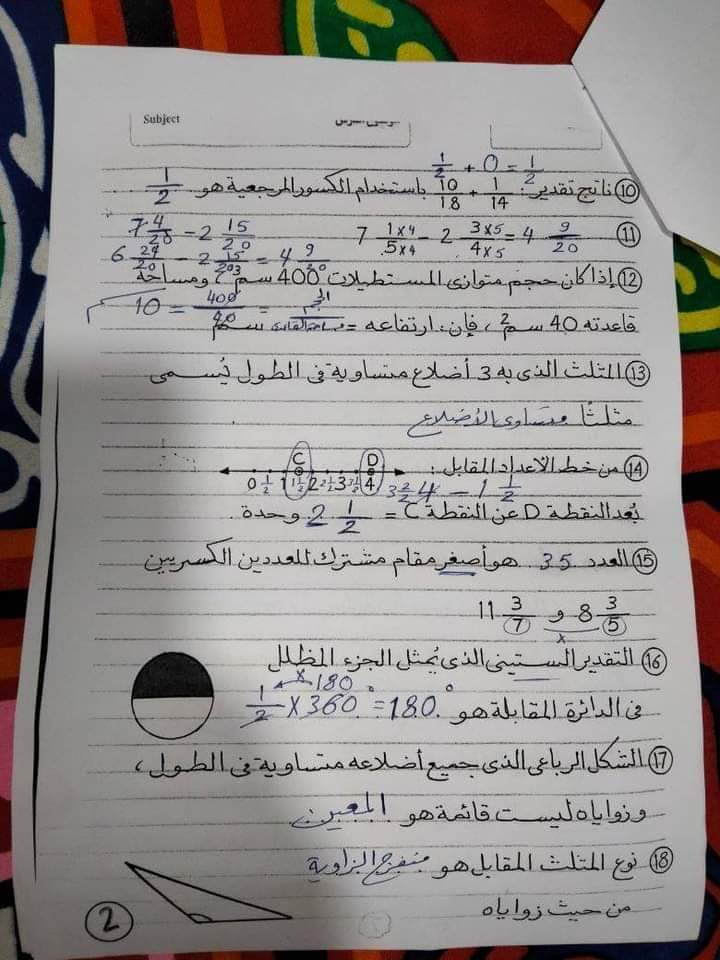 Subject
1/2 + 0 = 1/2
⑩ ناتج تقدير : 10/18 + 1/14 باستخدام الكسور المرجعية هو 1/2
⑪ 7 1×4/5×4 - 2 3×5/4×5 = 4 9/20
7 4/20 - 2 15/20
6 24/20 - 2 15/20 = 4 9/20
⑫ إذا كان حجم متوازى المستطيلات 400 سم3 ، ومساحة
قاعدته 40 سم2 ، فإن : ارتفاعه = الحجم/مساحة القاعدة = 400/40 = 10 سم
⑬ المثلث الذى به 3 أضلاع متساوية فى الطول يُسمى
مثلثًا متساوى الأضلاع
⑭ من خط الاعداد المقابل :
C D
0 1/2 1 1 1/2 2 2 1/2 3 3 1/2 4
3 2/2 4 - 1 1/2
بُعد النقطة D عن النقطة C = 2 1/2 وحدة .
⑮ العدد 35 هو أصغر مقام مشترك للعددين الكسريين
8 3/5 و 11 3/7
×
⑯ التقدير الستينى الذى يُمثل الجزء المظلل
فى الدائرة المقابلة هو 1/2 × 360° = 180°
× 180
⑰ الشكل الرباعى الذى جميع أضلاعه متساوية فى الطول ،
و زواياه ليست قائمة هو المعين
⑱ نوع المثلث المقابل هو منفرج الزاوية
من حيث زواياه
2